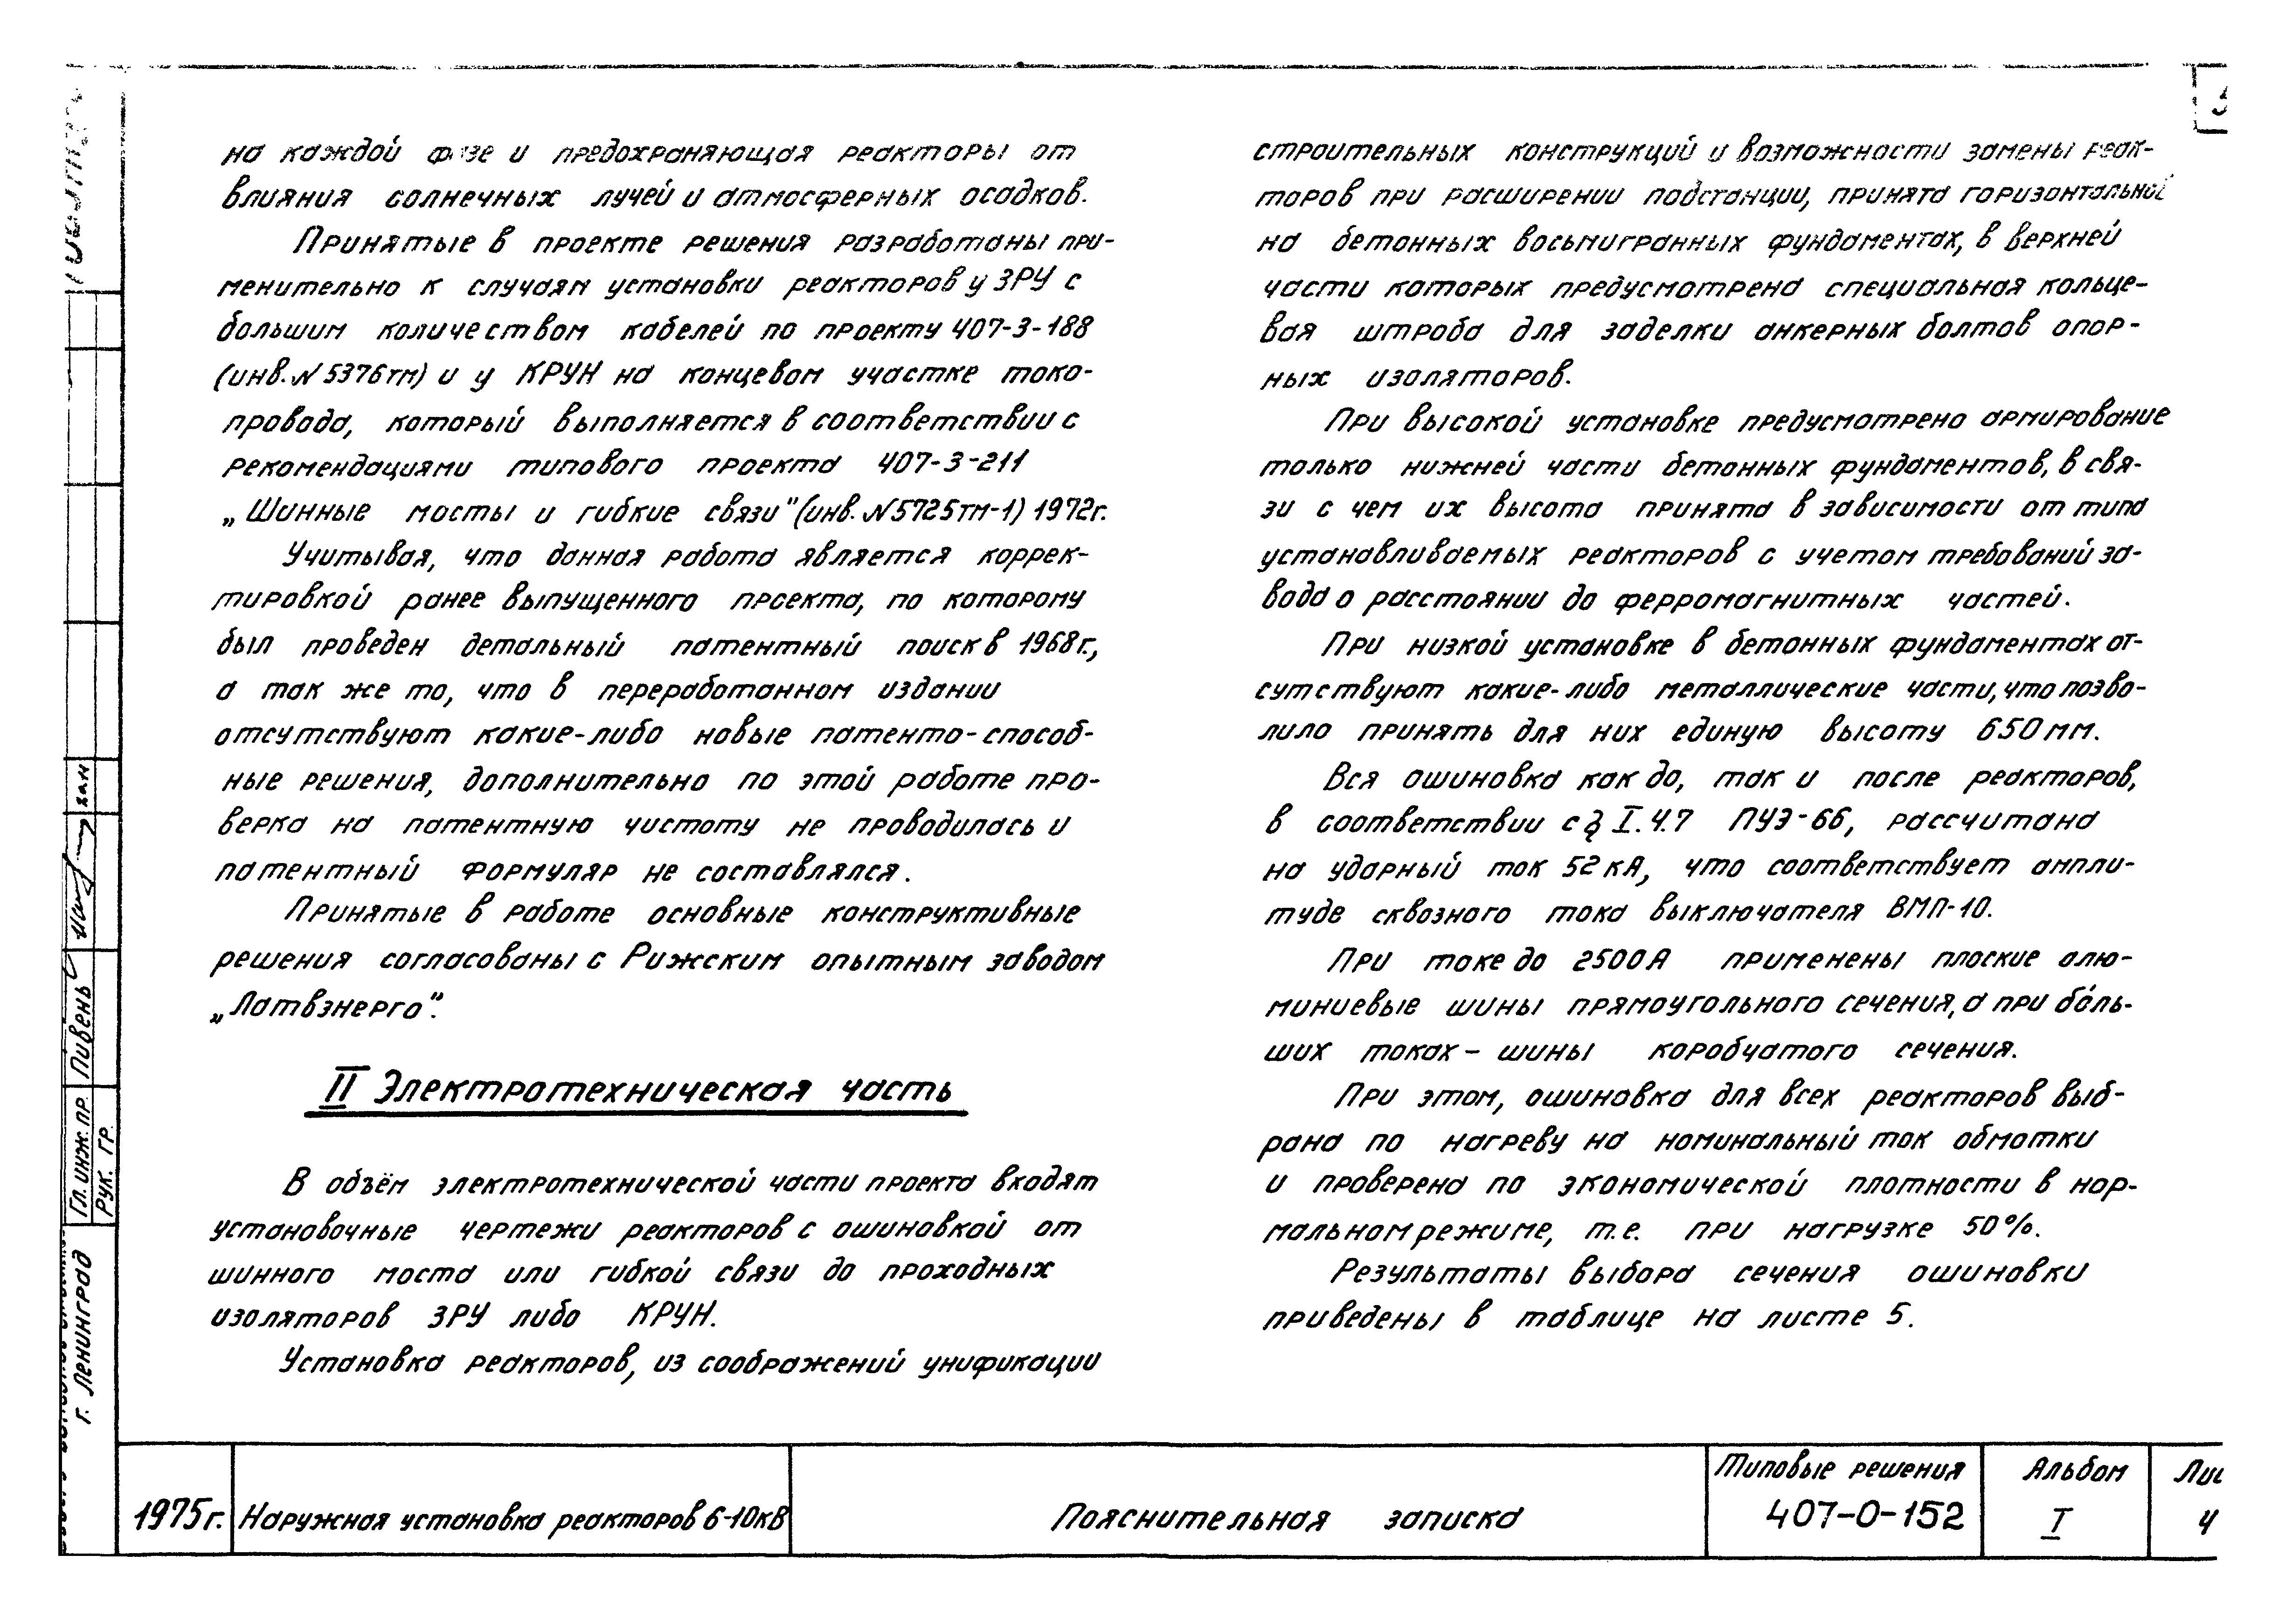 на каждой фазе и предохраняющая реакторы от
влияния солнечных лучей и атмосферных осадков.
Принятые в проекте решения разработаны при-
менительно к случаям установки реакторов у ЗРУ с
большим количеством кабелей по проекту 407-3-188
(инв. № 5376тм) и у КРУН на концевом участке токо-
провода, который выполняется в соответствии с
рекомендациями типового проекта 407-3-211
„Шинные мосты и гибкие связи" (инв. № 5725тм-1) 1972г.
Учитывая, что данная работа является коррек-
тировкой ранее выпущенного проекта, по которому
был проведен детальный патентный поиск в 1968г.,
а так же то, что в переработанном издании
отсутствуют какие-либо новые патенто-способ-
ные решения, дополнительно по этой работе про-
верка на патентную чистоту не проводилась и
патентный формуляр не составлялся.
Принятые в работе основные конструктивные
решения согласованы с Рижским опытным заводом
„Латвэнерго".
II Электротехническая часть
В объём электротехнической части проекта входят
установочные чертежи реакторов с ошиновкой от
шинного моста или гибкой связи до проходных
изоляторов ЗРУ либо КРУН.
Установка реакторов, из соображений унификации
строительных конструкций и возможности замены реак-
торов при расширении подстанции, принята горизонтальной
на бетонных восьмигранных фундаментах, в верхней
части которых предусмотрена специальная кольце-
вая штроба для заделки анкерных болтов опор-
ных изоляторов.
При высокой установке предусмотрено армирование
только нижней части бетонных фундаментов, в свя-
зи с чем их высота принята в зависимости от типа
устанавливаемых реакторов с учетом требований за-
вода о расстоянии до ферромагнитных частей.
При низкой установке в бетонных фундаментах от-
сутствуют какие-либо металлические части, что позво-
лило принять для них единую высоту 650 мм.
Вся ошиновка как до, так и после реакторов,
в соответствии с § I.4.7 ПУЭ-66, рассчитана
на ударный ток 52 кА, что соответствует ампли-
туде сквозного тока выключателя ВМП-10.
При токе до 2500А применены плоские алю-
миниевые шины прямоугольного сечения, а при бо́ль-
ших токах - шины коробчатого сечения.
При этом, ошиновка для всех реакторов выб-
рана по нагреву на номинальный ток обмотки
и проверена по экономической плотности в нор-
мальном режиме, т.е. при нагрузке 50%.
Результаты выбора сечения ошиновки
приведены в таблице на листе 5.
Гл. инж. пр. Пивень
Рук. гр.
г. Ленинград
1975г. Наружная установка реакторов 6-10кВ
Пояснительная записка
Типовые решения
407-0-152
Альбом
I
Лис
4